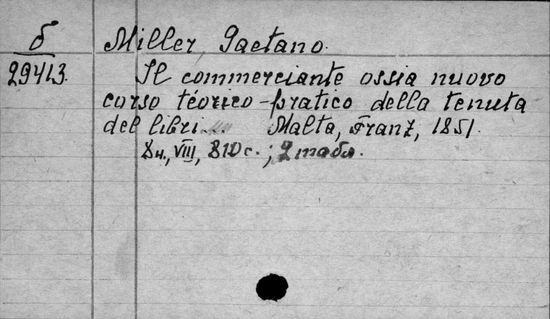 δ Miller Gaetano.
29413. Il commerciante ossia nuovo
corso téorico-pratico della tenuta
del libri... Malta, Franz, 1851.
8н., VIII, 810 с.; 2 табл.